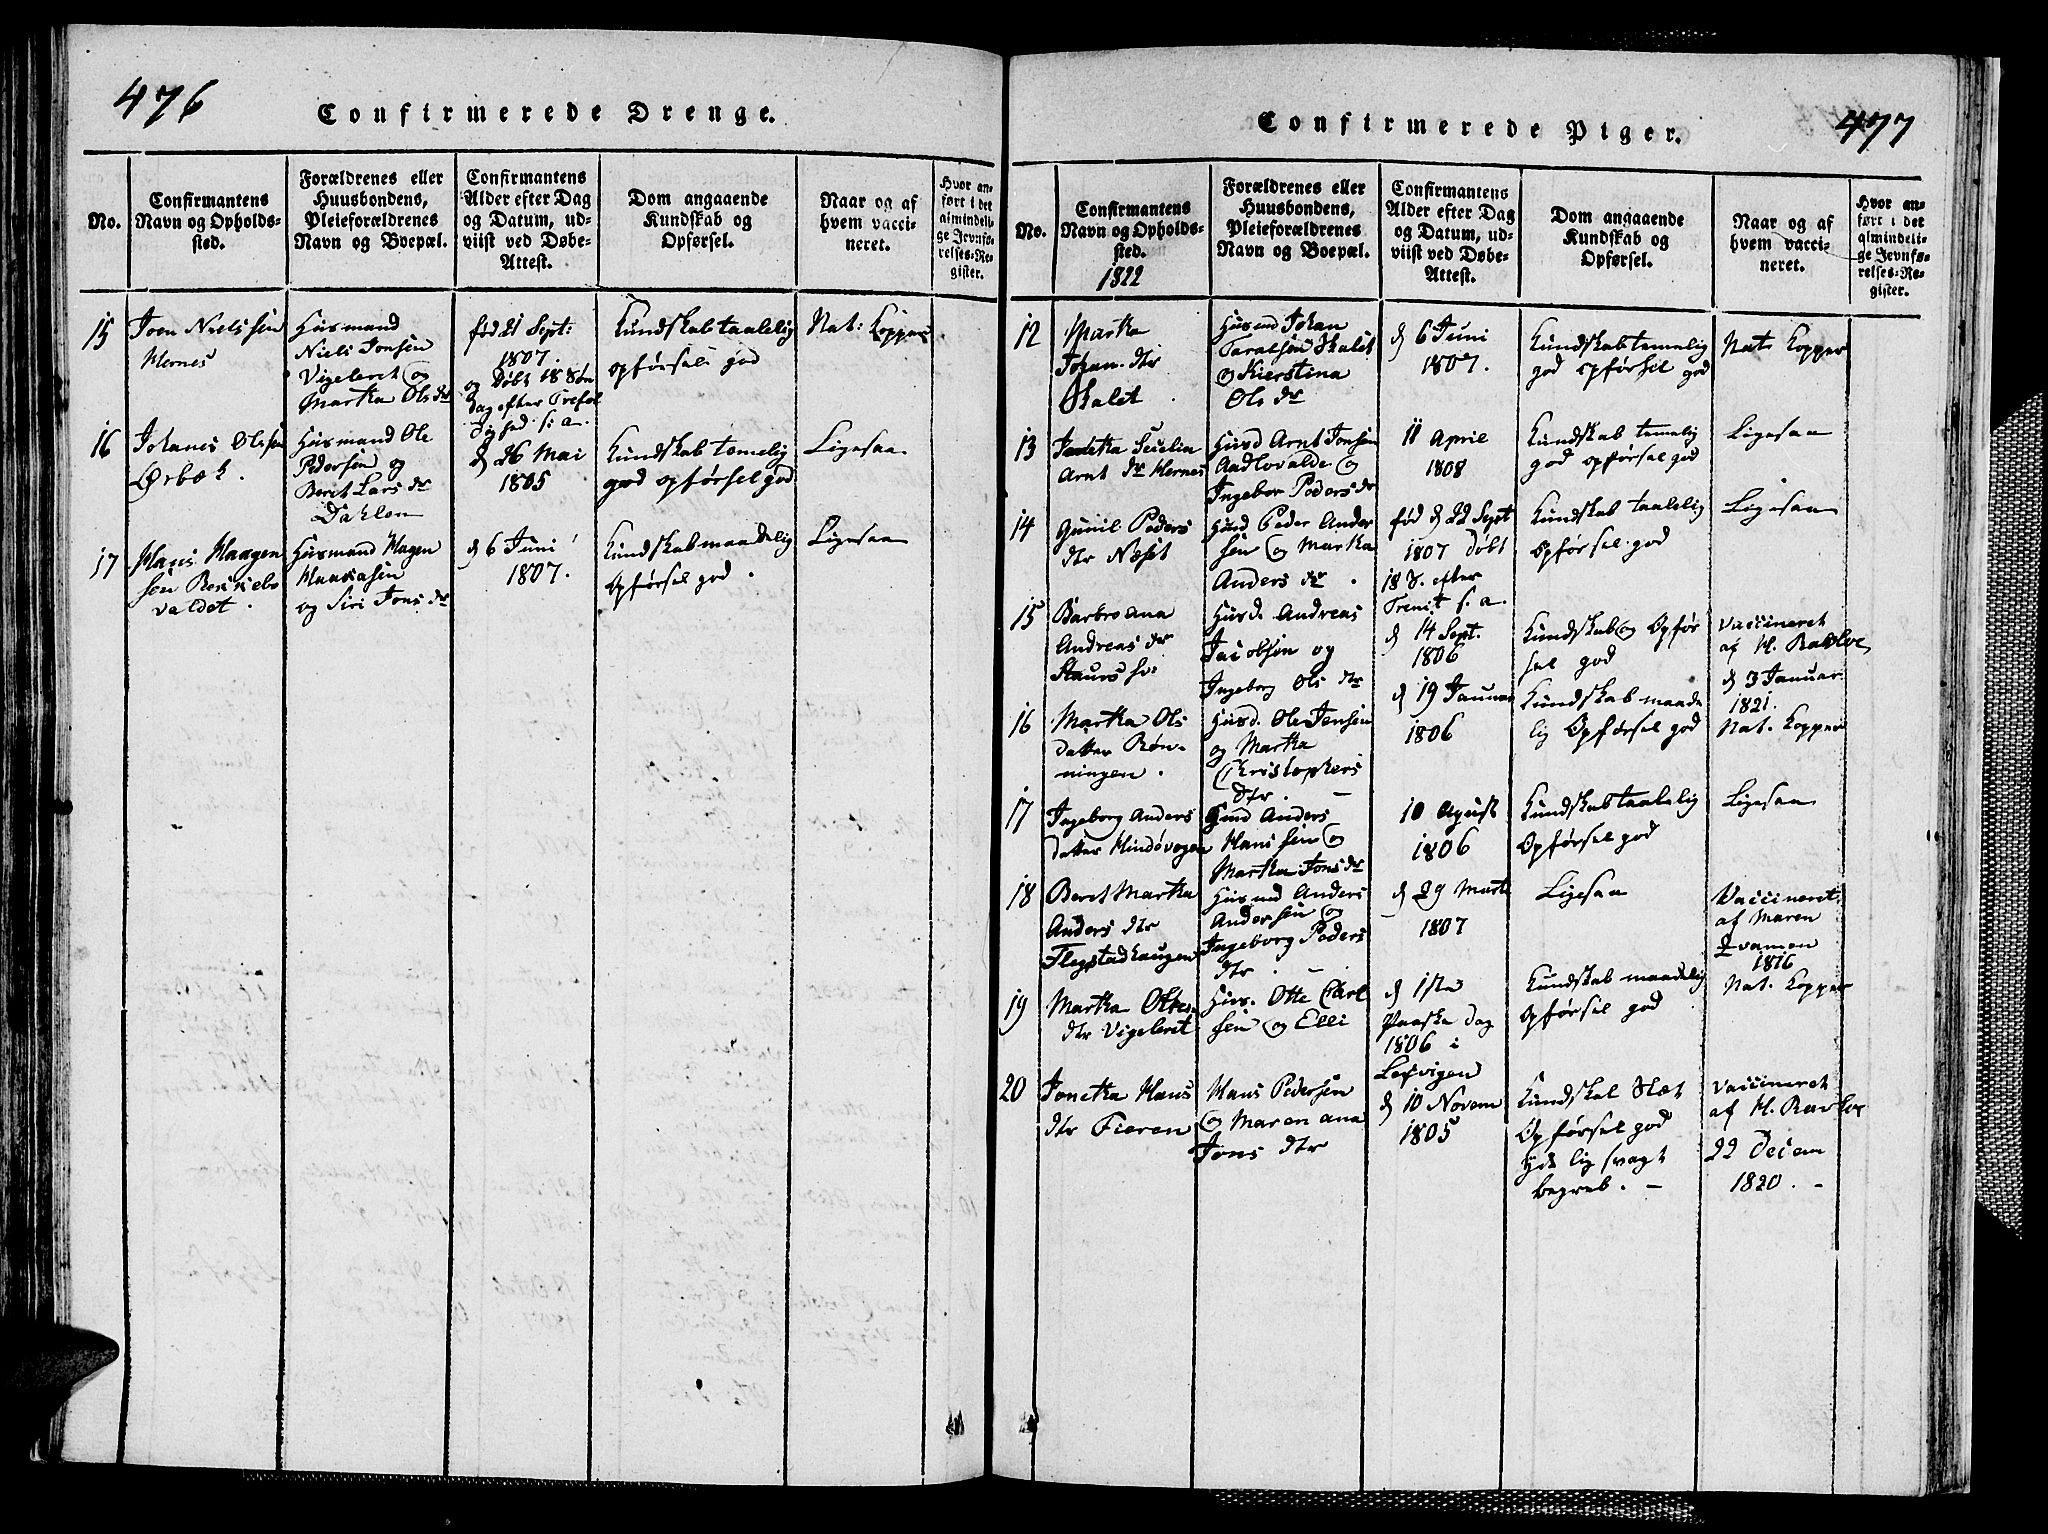 476
Confirmerede Drenge.
No.
Confirmantens
Navn og Opholds-
sted.
Forældrenes eller
Huusbondens,
Pleieforældrenes
Navn og Boepæl.
Confirmantens
Alder efter Dag
og Datum, ud-
viist ved Døbe-
Attest.
Dom angaaende
Kundskab og
Opførsel.
Naar og af
hvem vacci-
neret.
Hvor an-
ført i det
almindeli-
ge Jevnfø-
relses-Re-
gister.
15
Joen Nielssen
Mernes
Huusmand
Niels Jonsen
Vigeleret og
Martha Ols dr
fød 21 Sept:
1807.
og Døbt 18 Søn
dag efter Trefol
dighed s: a.
Kundskab taalelig
opførsel god
Nat: Kopper
16
Johanes Olsen
Ørbæk.
Huusmand Ole
Pedersen og
Beret Lars dr
Dahlen
d 26 Mai
1805
Kundskab temelig
god opførsel god
Ligesaa
17
Hans Haagen
sen
valdet.
Huusmand Hagen
og Siri Jons dr
d 6 Juni
1807.
Kundskab maadelig
Opførsel god.
Ligesaa
477
Confirmerede Piger.
No.
Confirmantens
Navn og Opholds-
sted.
1822
Forældrenes eller
Huusbondens,
Pleieforældrenes
Navn og Boepæl.
Confirmantens
Alder efter Dag
og Datum, ud-
viist ved Døbe-
Attest.
Dom angaaende
Kundskab og
Opførsel.
Naar og af
hvem vacci-
neret.
Hvor an-
ført i det
almindeli-
ge Jevnfø-
relses-Re-
gister.
12
Martha
Johan. dtr
Skalet
Husmd Johan
Taralsen Skalet
og Kierstina
Ols dr
d 6 Juni
1807.
Kundskab temelig
god opførsel god
Nat. Kopper
13
Seselia
Arnt dr Mernes
Husd Arnt Jonsen
og
Ingebor Peders dr
11 April
1808
Kundskab temelig
god opførsel god
Ligesaa
14
Gunil Peders
dtr Næset
Husd Peder Ander
sen og Martha
Anders dr.
fød d 22 Sept
1807 Døbt
18 S. efter
Trenit s. a.
Kundskab taalelig
Opførsel god
Ligesaa
15
Barbroana
Andreas dr
Husd. Andreas
Jacobsen og
Ingeborg Ols dtr
d 14 Sept.
1806
Kundskab og Opfør
sel god
Vaccineret
af H.
d 3 Januar
1821.
16
Martha Ols
datter Røn-
ningen.
Husd. Ole Jensen
og Martha
Christophers
dtr.
d 19 Januar
1806
Kundskab maade
lig Opførsel god
Nat. Kopper
17
Ingeborg Anders
datter Hindøvogen
Husmd Anders
Hanssen og
Martha Jons dr
10 Agust
1806
Kundskab taalelig
Opførsel god
Ligesaa
18
Beret Martha
Anders dtr
Flegstadhaugen
Husmd Anders
Andersen og
Ingeborg Peders
dtr.
d 29 Marts
1807
Ligesaa
Vaccineret
af Maren
Qvamen
1816
19
Martha Ottes
dtr Vigeleret
Hus. Otte Carl
sen og Elli
d 1ste
Paaske dag
1806 i
Lexvigen
Kundskab maadelig
Opførsel god
Nat. Kopper
20
Jonetha Hans
dtr Fieren
Hans Pedersen
og Maren ana
Jons dtr
d 10 Novem
1805
Kundskab Slæt
Opførsel god
lig svagt
begreb. -
Vaccineret
af H.
22 Decem
1820. -